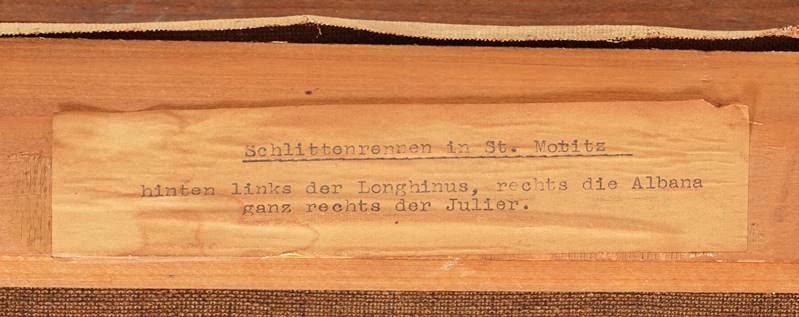 Schlittenrennen in St. Motitz
hinten links der Longhinus, rechts die Albana
ganz rechts der Julier.